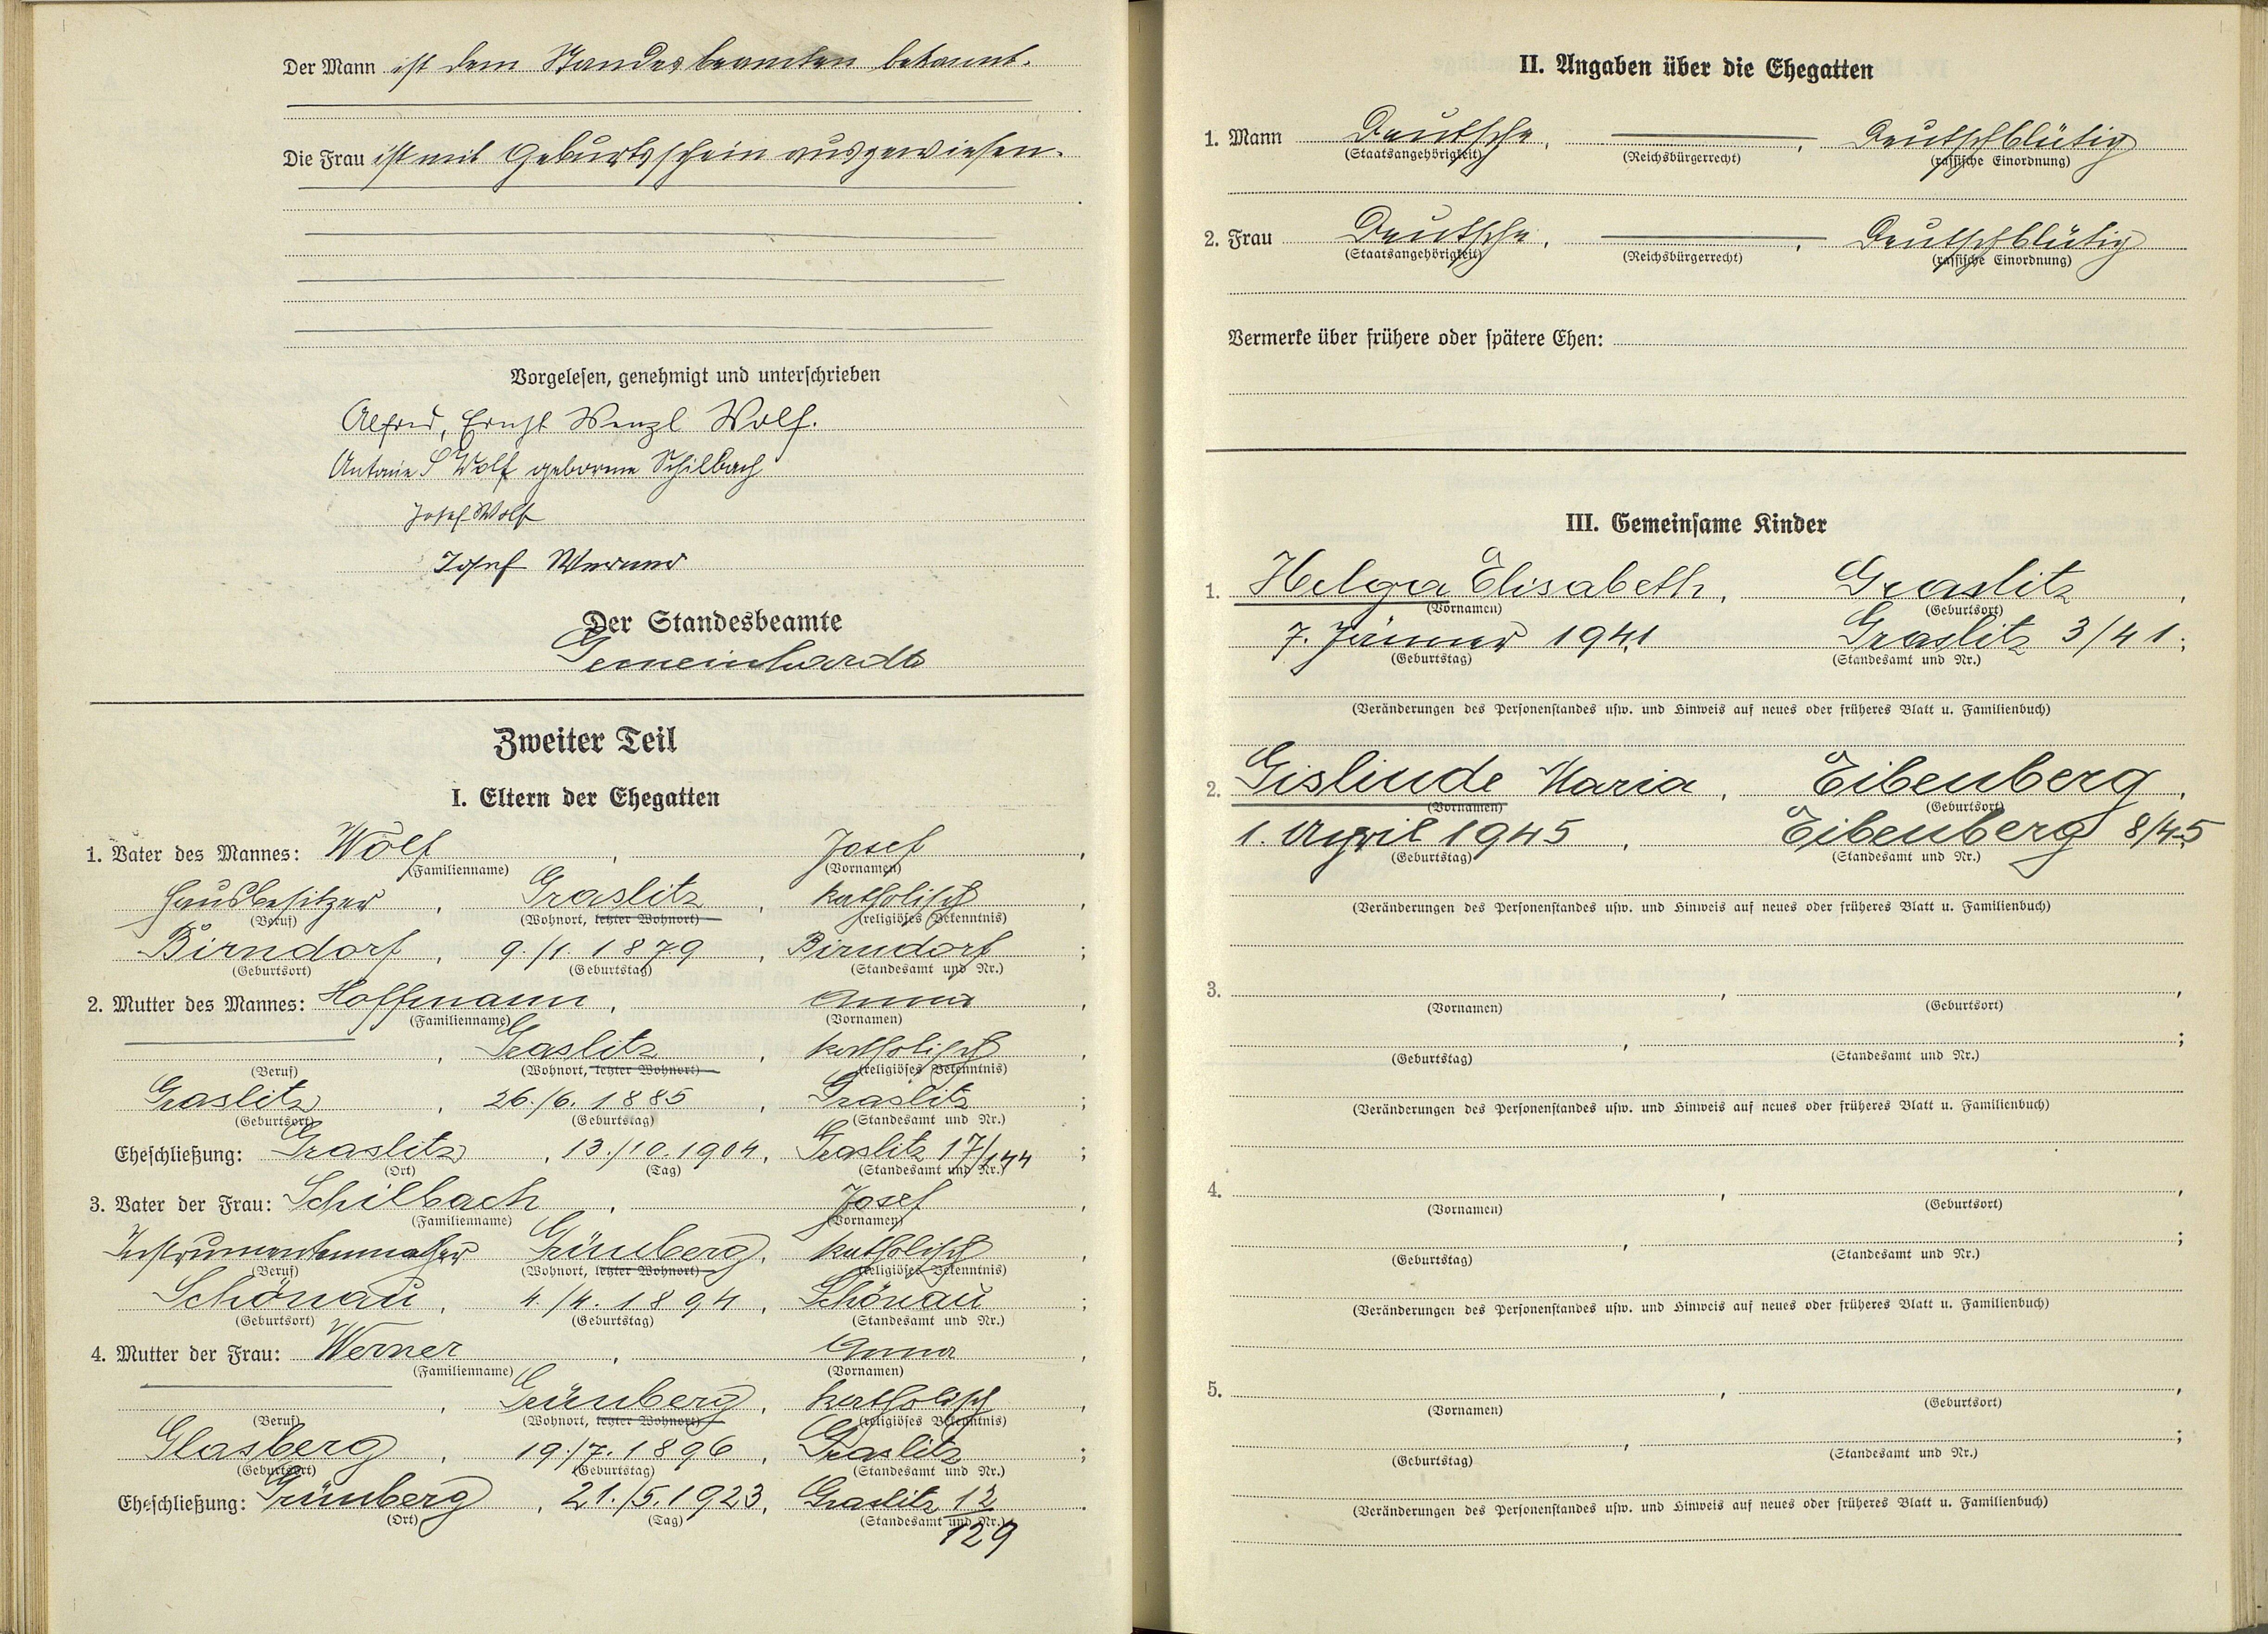 Der Mann ist dem Standesbeamten bekannt.
Die Frau ist mit Geburtsschein ausgewiesen.
Vorgelesen, genehmigt und unterschrieben
Alfred, Ernst Wenzl Wolf.
Antonie S Wolf geborene Schilbach
Josef Wolf
Josef Werner
Der Standesbeamte
Gemeinhardt
Zweiter Teil
I. Eltern der Ehegatten
1. Vater des Mannes: Wolf, Josef,
(Familienname) (Vornamen)
Hausbesitzer, Graslitz, katholisch,
(Beruf) (Wohnort, letzter Wohnort) (religiöses Bekenntnis)
Birndorf, 9./1. 1879, Birndorf;
(Geburtsort) (Geburtstag) (Standesamt und Nr.)
2. Mutter des Mannes: Hoffmann, Anna,
(Familienname) (Vornamen)
, Graslitz, katholisch,
(Beruf) (Wohnort, letzter Wohnort) (religiöses Bekenntnis)
Graslitz, 26./6. 1885, Graslitz;
(Geburtsort) (Geburtstag) (Standesamt und Nr.)
Eheschließung: Graslitz, 13./10. 1904, Graslitz 17/144;
(Ort) (Tag) (Standesamt und Nr.)
3. Vater der Frau: Schilbach, Josef,
(Familienname) (Vornamen)
Instrumentenmacher Grünberg, katholisch,
(Beruf) (Wohnort, letzter Wohnort) (religiöses Bekenntnis)
Schönau, 4./4. 1894, Schönau;
(Geburtsort) (Geburtstag) (Standesamt und Nr.)
4. Mutter der Frau: Werner, Anna,
(Familienname) (Vornamen)
, Grünberg, katholisch,
(Beruf) (Wohnort, letzter Wohnort) (religiöses Bekenntnis)
Glasberg, 19./7. 1896, Graslitz;
(Geburtsort) (Geburtstag) (Standesamt und Nr.)
Eheschließung: Grünberg, 21./5. 1923, Graslitz 12/129.
(Ort) (Tag) (Standesamt und Nr.)
II. Angaben über die Ehegatten
1. Mann Deutsche, , Deutschblütig
(Staatsangehörigkeit) (Reichsbürgerrecht) (rassische Einordnung)
2. Frau Deutsche, , Deutschblütig
(Staatsangehörigkeit) (Reichsbürgerrecht) (rassische Einordnung)
Vermerke über frühere oder spätere Ehen:
III. Gemeinsame Kinder
1. Helga Elisabeth, Graslitz,
(Vornamen) (Geburtsort)
7. Jänner 1941 Graslitz 3/41;
(Geburtstag) (Standesamt und Nr.)
(Veränderungen des Personenstandes usw. und Hinweis auf neues oder früheres Blatt u. Familienbuch)
2. Gislinde Maria, Eibenberg,
(Vornamen) (Geburtsort)
1. April 1945, Eibenberg 8/45
(Geburtstag) (Standesamt und Nr.)
(Veränderungen des Personenstandes usw. und Hinweis auf neues oder früheres Blatt u. Familienbuch)
3. , ,
(Vornamen) (Geburtsort)
, ;
(Geburtstag) (Standesamt und Nr.)
(Veränderungen des Personenstandes usw. und Hinweis auf neues oder früheres Blatt u. Familienbuch)
4. , ,
(Vornamen) (Geburtsort)
, ;
(Geburtstag) (Standesamt und Nr.)
(Veränderungen des Personenstandes usw. und Hinweis auf neues oder früheres Blatt u. Familienbuch)
5. , ,
(Vornamen) (Geburtsort)
, ;
(Geburtstag) (Standesamt und Nr.)
(Veränderungen des Personenstandes usw. und Hinweis auf neues oder früheres Blatt u. Familienbuch)